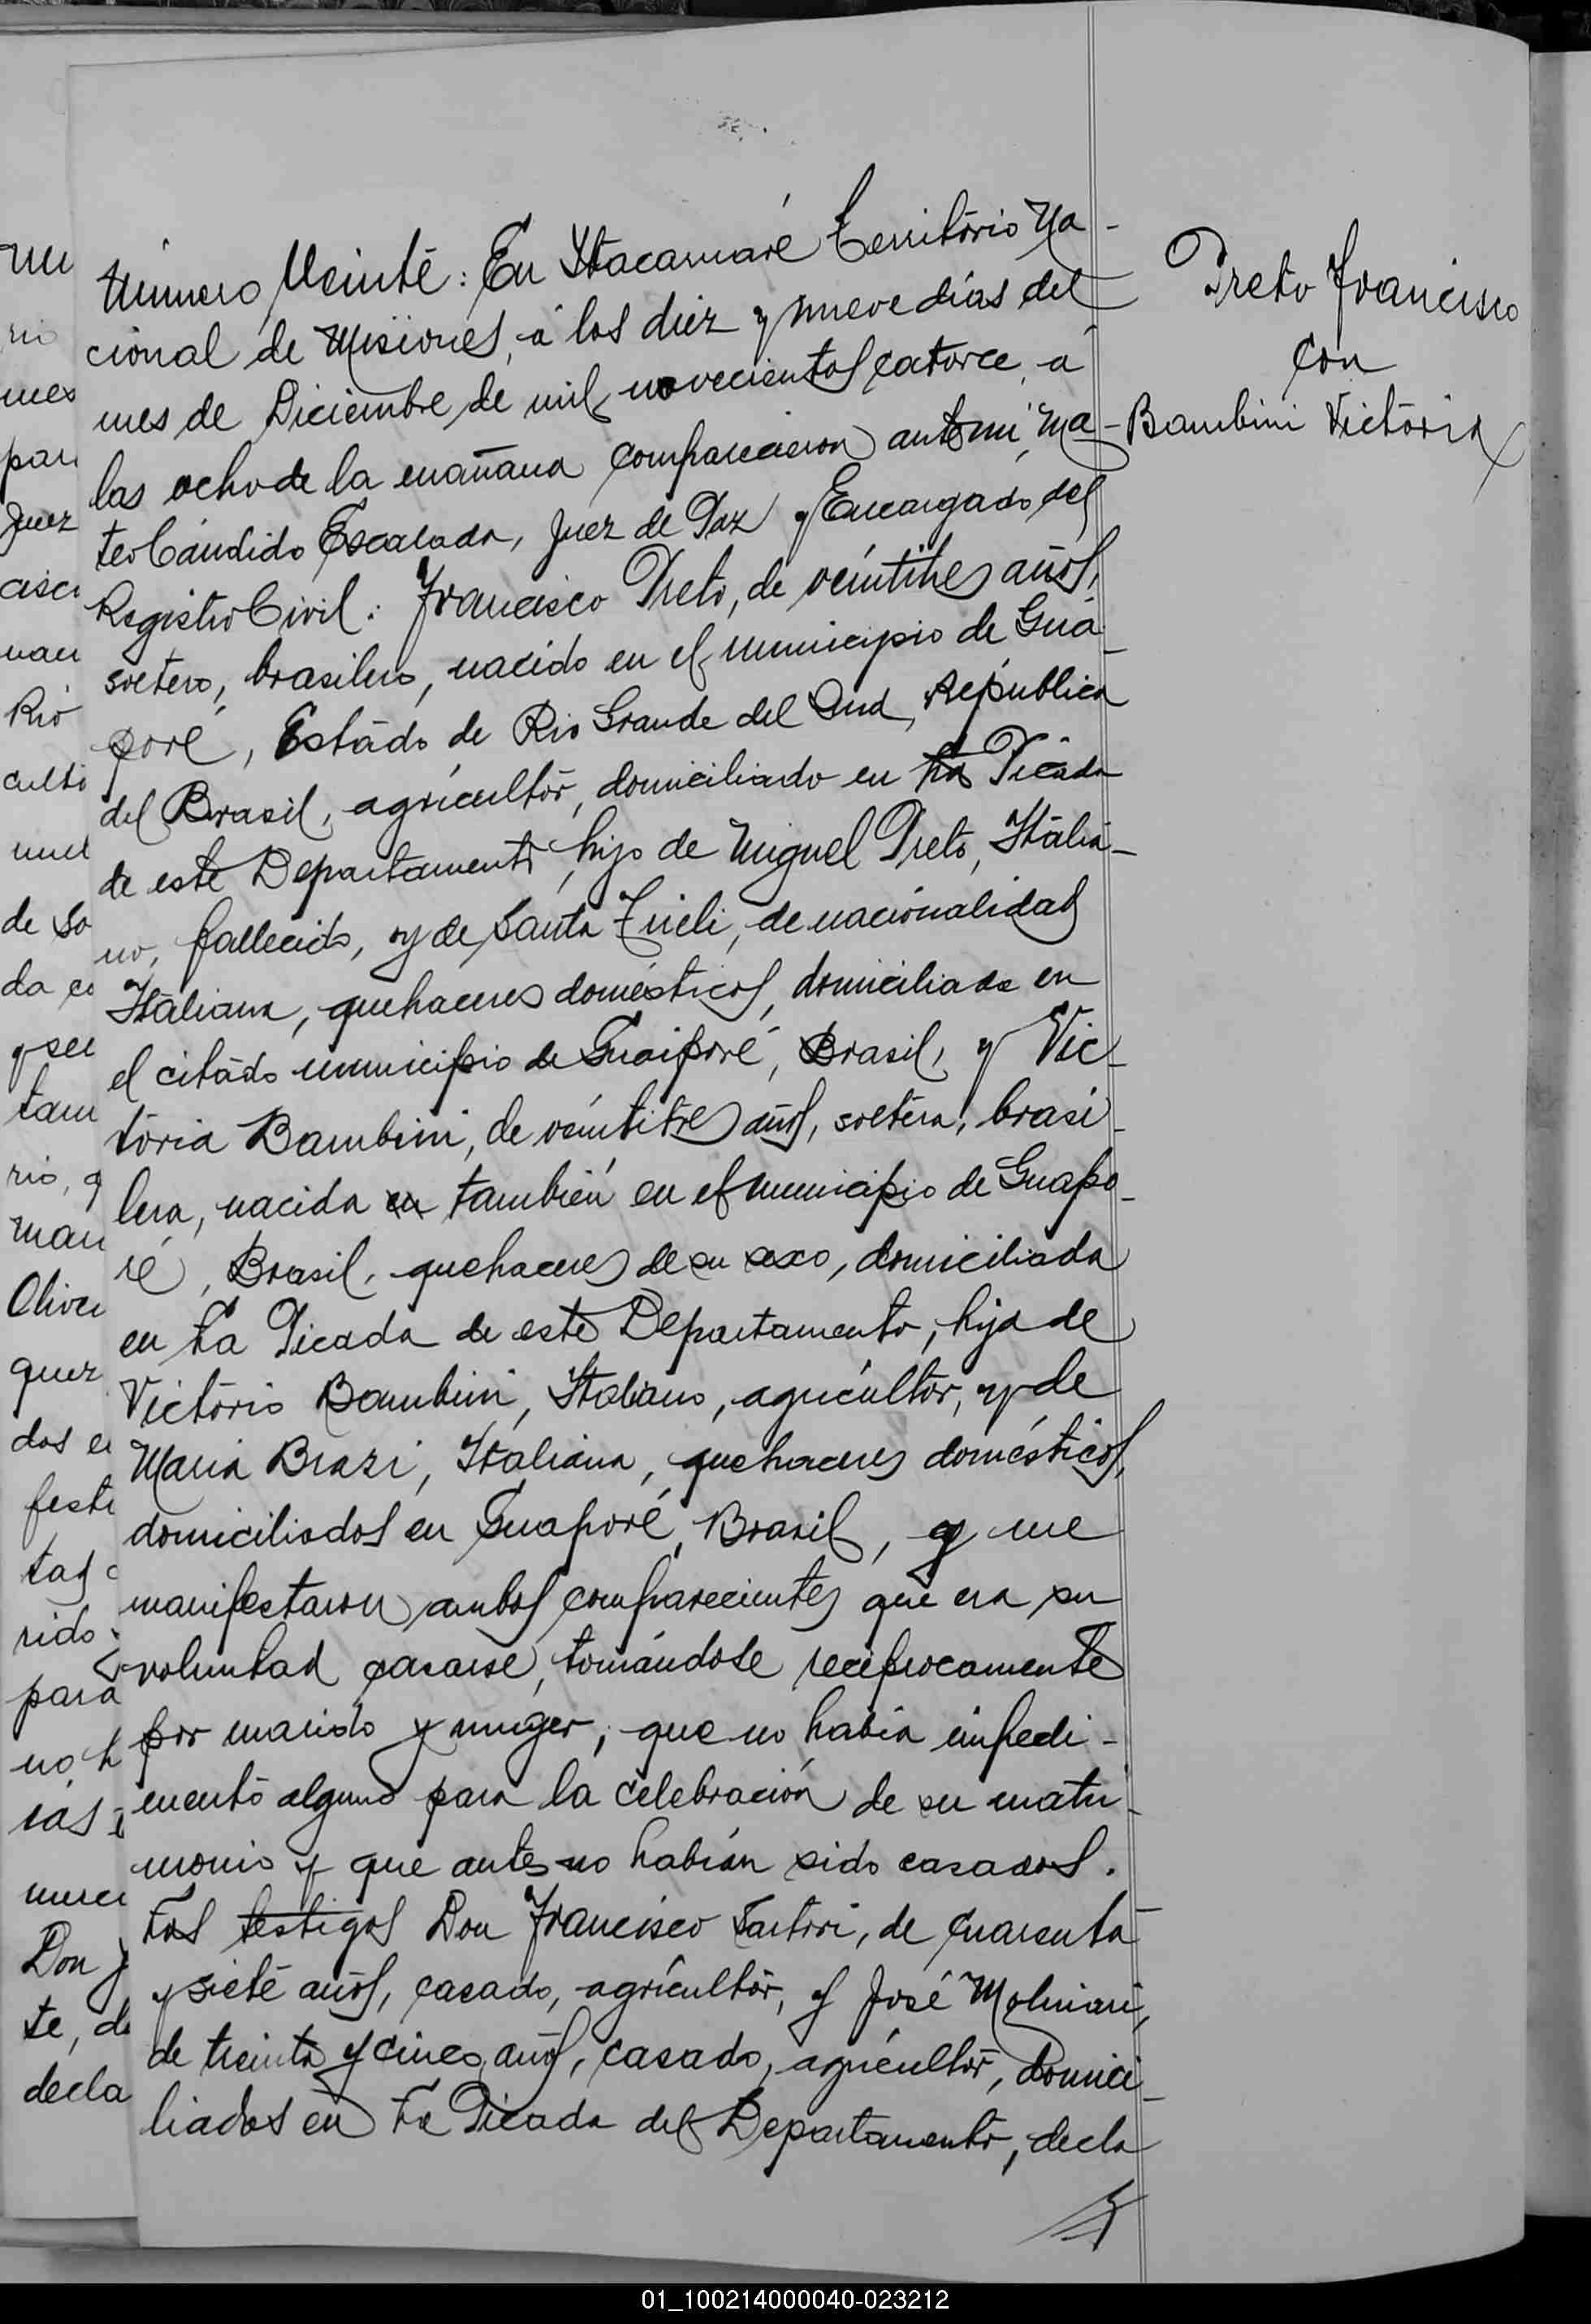 Número Veinte: En Itacaruaré Território Na-
cional de Misiones, á los diez y nueve días del
mes de Diciembre de mil novecientos catorce, á
las ocho de la mañana comparecieron ante mi, Ma-
teo Cándido Escalada, Juez de Paz y Encargado del
Registro Civil: Francisco Preto, de veintitres años,
soltero, brasilero, nacido en el municipio de Gua-
poré, Estado de Rio Grande del Sud, República
del Brasil, agricultor, domiciliado en La Picada
de este Departamento, hijo de Miguel Preto, Italia-
no, fallecido, y de Santa, de nacionalidad
Italiana, quehaceres domésticos, domiciliada en
el citado municipio de Guaiporé, Brasil, y Vic-
toria Bambini, de veintitres años, soltera, brasi-
lera, nacida en también en el municipio de Guapo-
ré, Brasil, quehaceres de su sexo, domiciliada
en La Picada de este Departamento, hija de
Victório Bambini, Italiano, agricultor, y de
Maria Brazi, Italiana, quehaceres domésticos,
domiciliados en Guaporé, Brasil, y me
manifestaron ambos comparecientes que era su
voluntad casarse, tomándose reciprocamente
por marido y muger; que no habia impedi-
mento alguno para la celebración de su matri-
monio y que antes no habian sido casados.
Los testigos Don Francisco Sartori, de cuarenta
y siete años, casado, agricultor, y José Molinari,
de treinta y cinco años, casado, agricultor, domici-
liados en La Picada del Departamento, decla
Preto Francisco
con
Bambini Victoria
nu
rio
mes
par
Juez
cisc
nac
Rio
culti
mel
de So
da e
y se
tam
rio, q
man
Olive
quez
dos e
festa
tas
rido
para
no, h
ias
Don J
te, de
decla
01_100214000040-023212